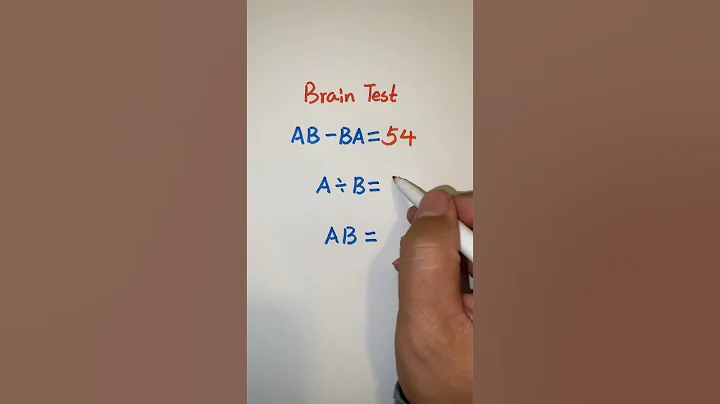 Brain Test
AB-BA=54
A÷B=
AB=